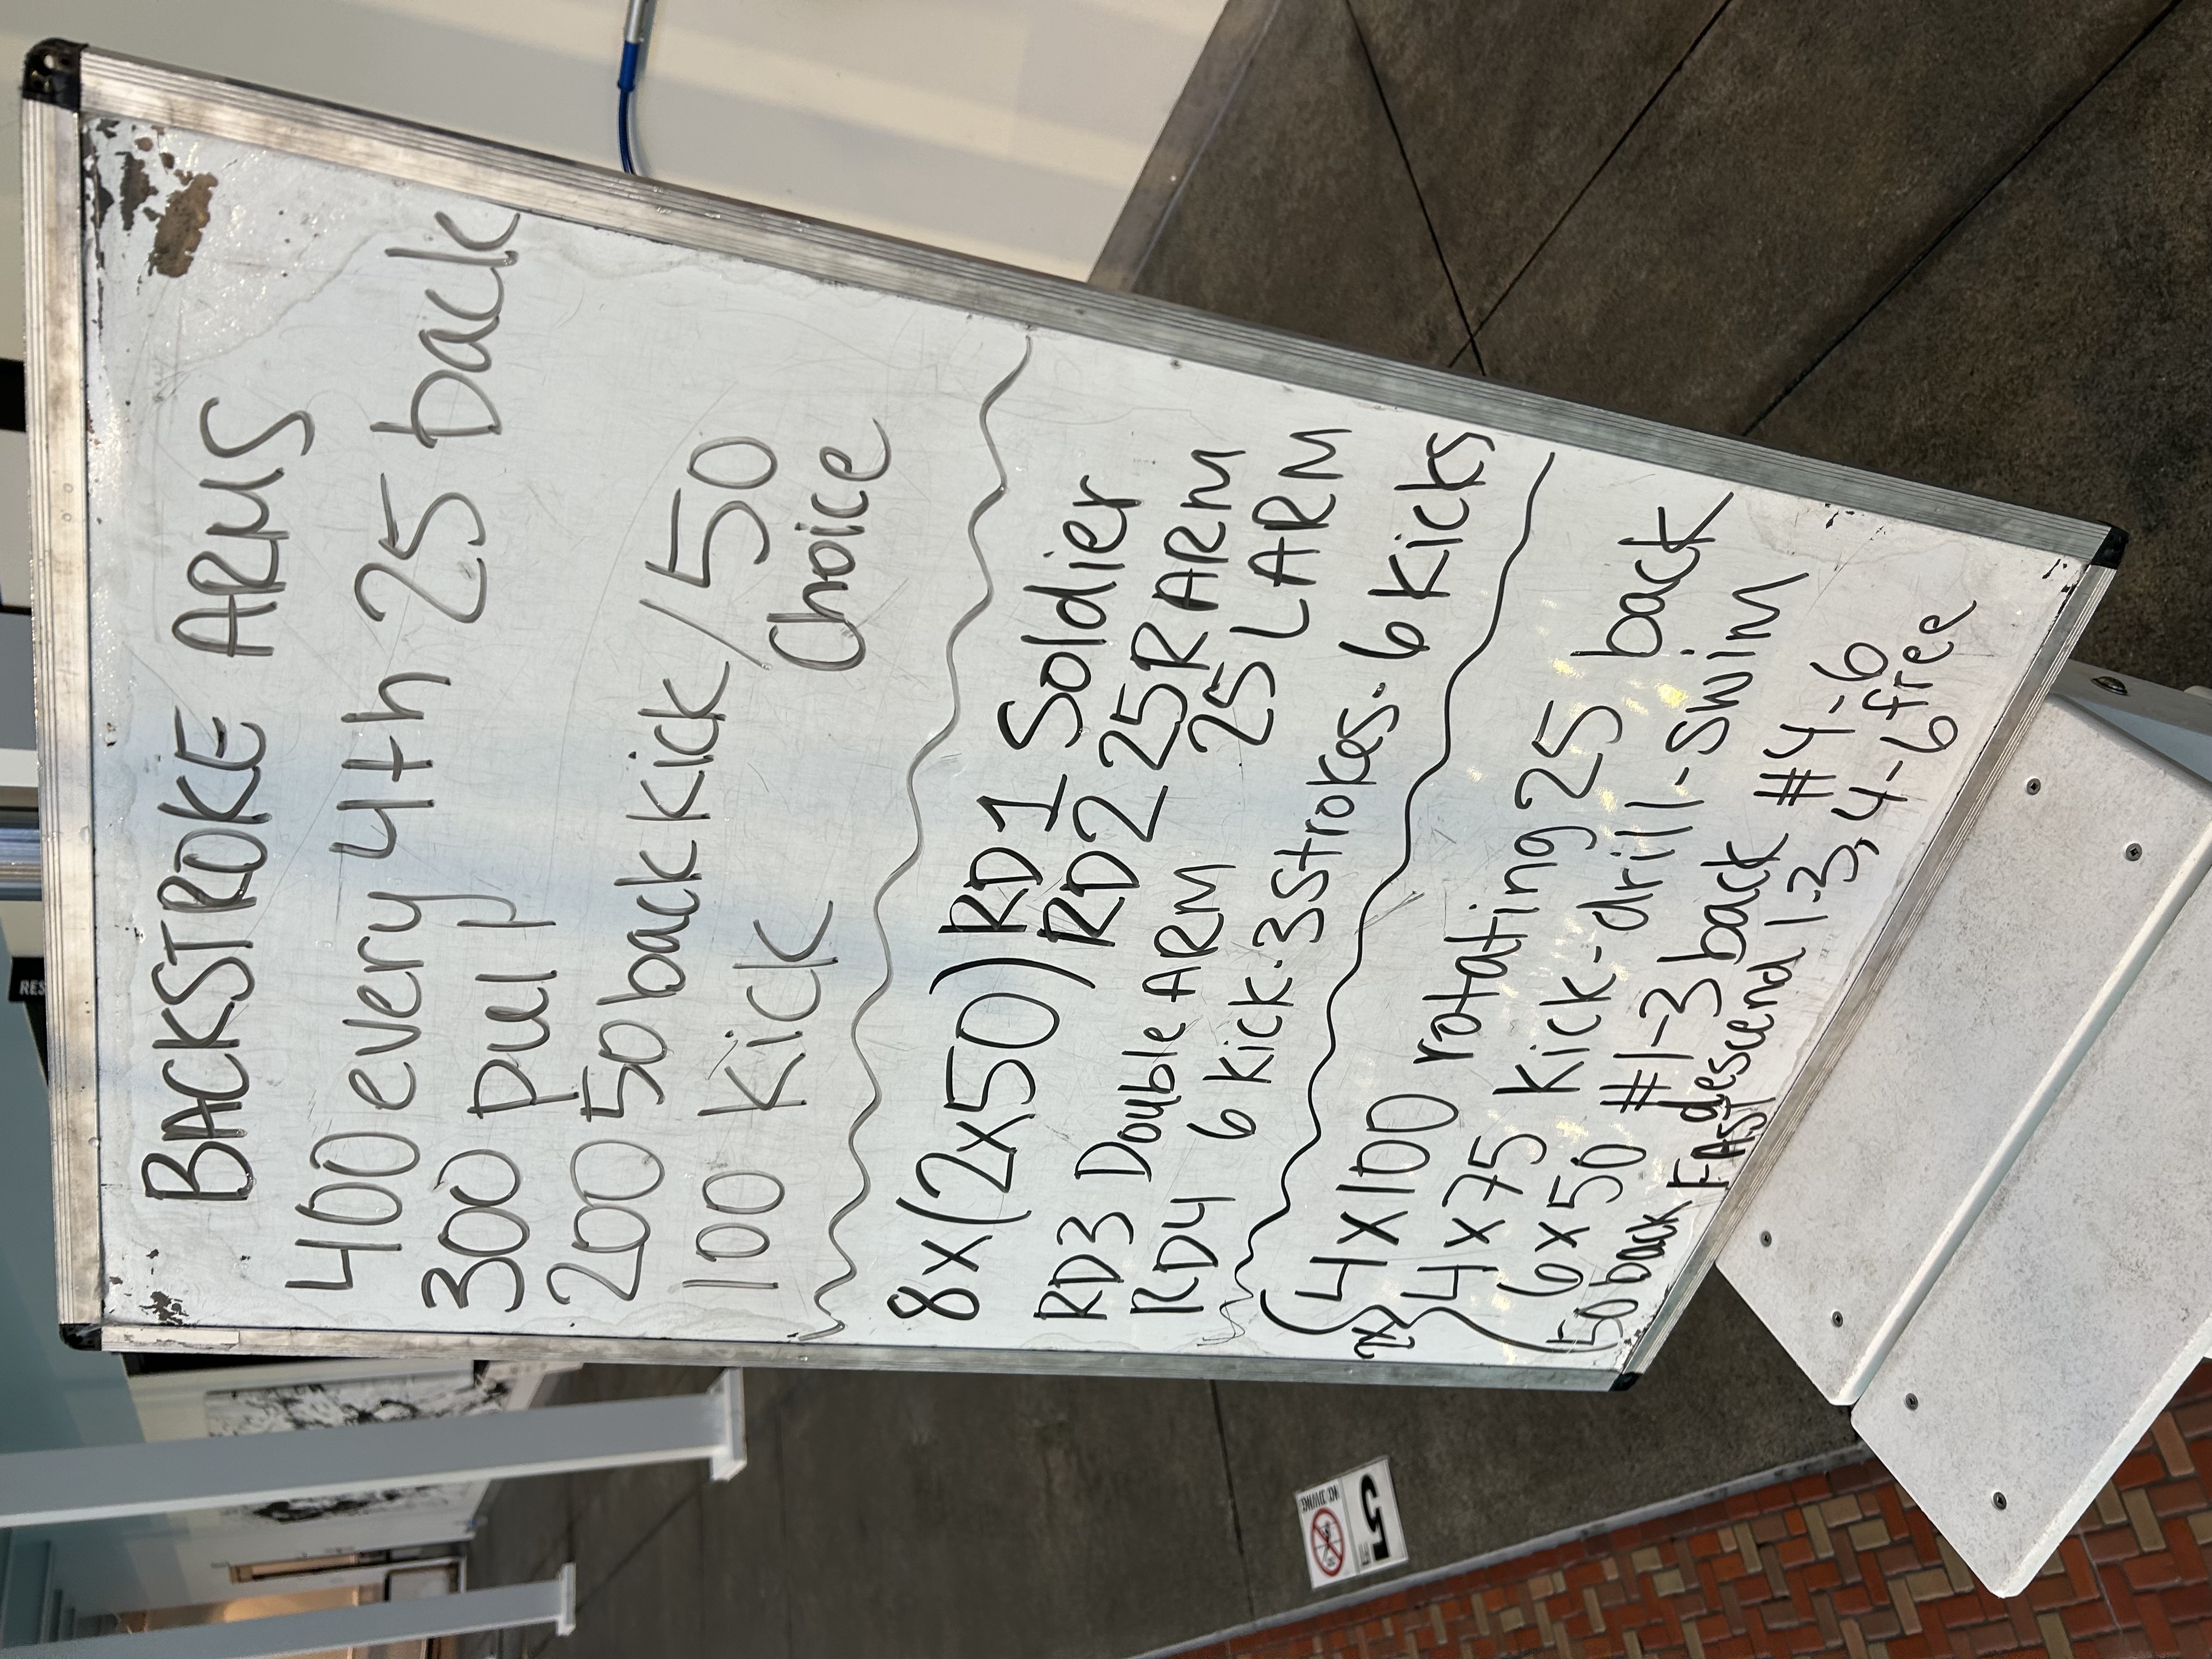 BACKSTROKE ARMS
400 every 4th 25 back
300 pull
200 50 back kick/50 Choice
100 Kick
8x(2x50) RD 1 Soldier
RD2 25 R ARM
25 L ARM
RD3 Double ARM
RD4 6 kick-3 Strokes-6 Kicks
4x100 rotating 25 back
4x75 kick-drill-swim
6x50 #1-3 back #4-6 free
descend 1-3, 4-6
50 back FAST
RES
NO DIVING
5